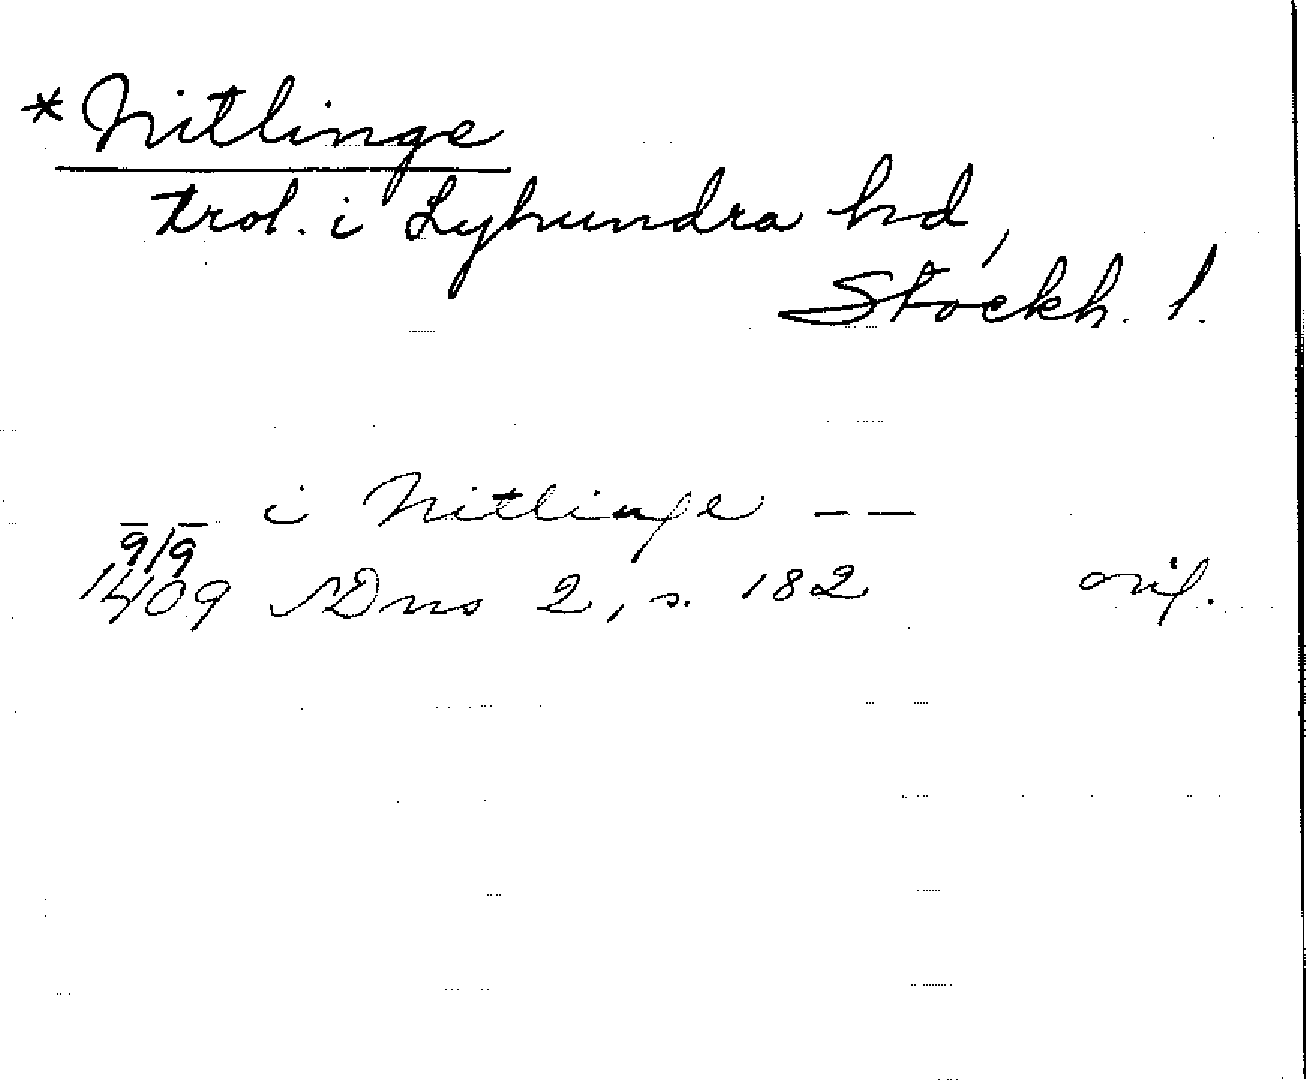 *Nitlinge
trol. i Lyhundra hd,
Stockh. l.
i Nitlinge --
9/9
1409 SDns 2, s. 182 orig.